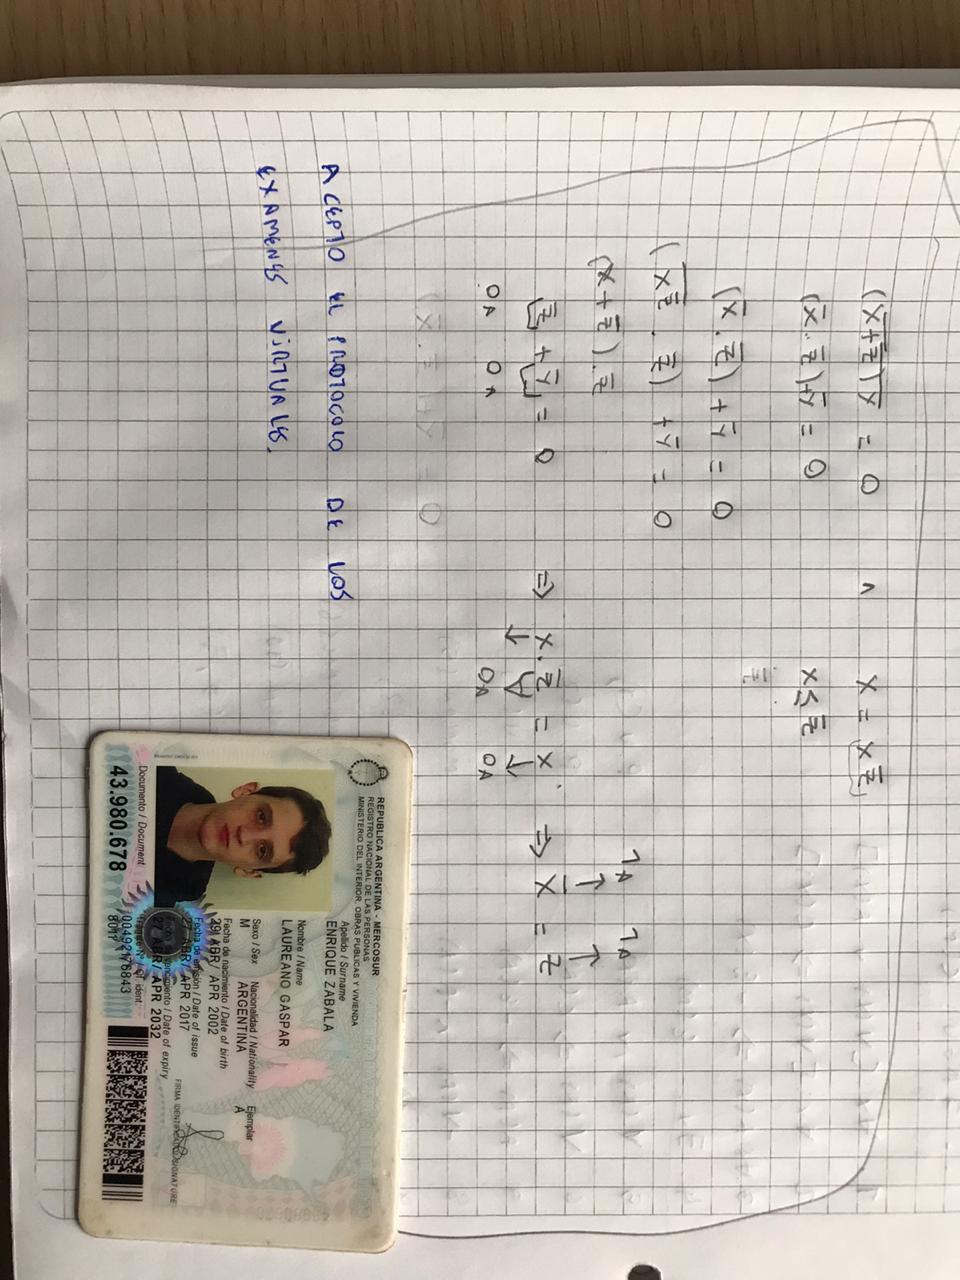 (x+z̅)y = 0 ∧ x = x z̅
(x̅ . z̅)+y̅ = 0 x ≤ z̅
(x̅ . z̅) + y̅ = 0 z̅
(x z̅ . z̅) + y̅ = 0
(x + z̅) . z̅
z̅ + y̅ = 0 ⇒ x . z̅ = x ⇒ x̅ = z
0A 0A 0A 0A 1A 1A
ACEPTO EL PROTOCOLO DE LOS
EXAMENES VIRTUALES.
REPUBLICA ARGENTINA - MERCOSUR
REGISTRO NACIONAL DE LAS PERSONAS
MINISTERIO DEL INTERIOR, OBRAS PUBLICAS Y VIVIENDA
Apellido / Surname
ENRIQUE ZABALA
Nombre / Name
LAUREANO GASPAR
Sexo / Sex Nacionalidad / Nationality Ejemplar
M ARGENTINA A
Fecha de nacimiento / Date of birth
29 ABR/ APR 2002
Fecha de emisión / Date of issue
27 ABR/ APR 2017
Fecha de vencimiento / Date of expiry
27 ABR/ APR 2032
FIRMA IDENTIFICADO / SIGNATURE
Documento / Document
43.980.678
Trámite Nº / Of. ident.
00492176843
8011